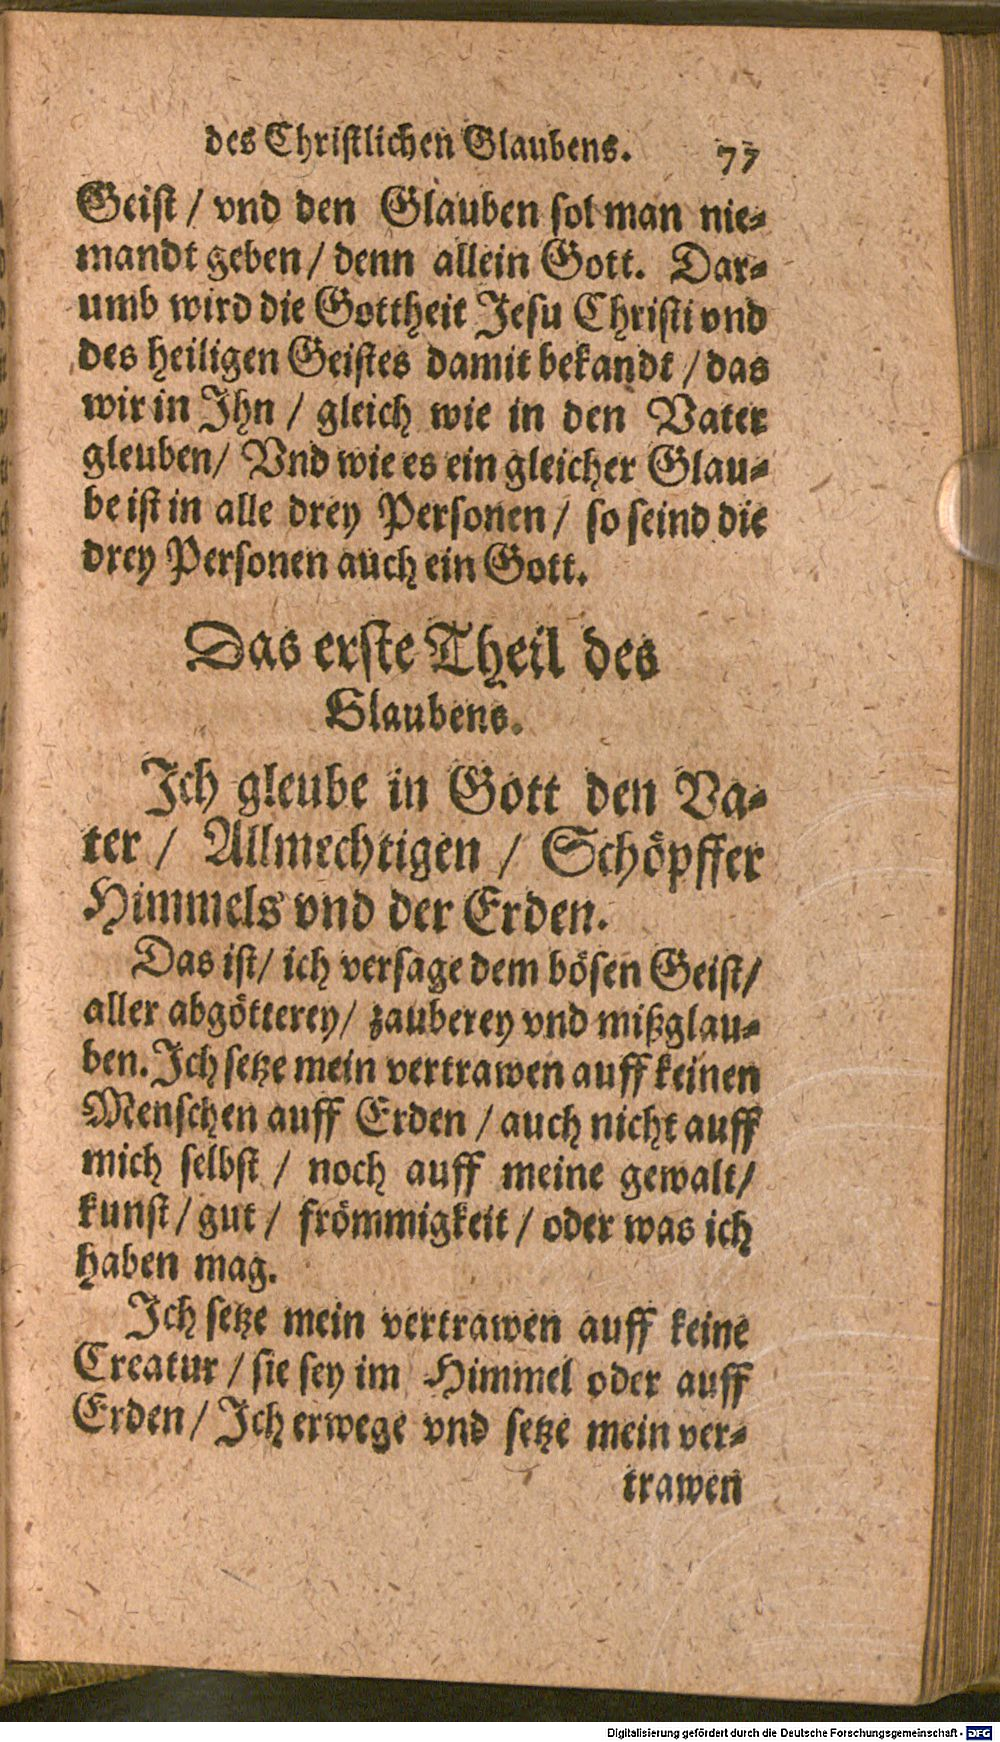 des Christlichen Glaubens. 77
Geist / vnd den Glauben sol man nie-
mandt geben / denn allein Gott. Dar-
umb wird die Gottheit Jesu Christi vnd
des heiligen Geistes damit bekandt / das
wir in Ihn / gleich wie in den Vater
gleuben / Vnd wie es ein gleicher Glau-
be ist in alle drey Personen / so seind die
drey Personen auch ein Gott.
Das erste Theil des
Glaubens.
Ich gleube in Gott den Va-
ter / Allmechtigen / Schöpffer
Himmels vnd der Erden.
Das ist / ich versage dem bösen Geist /
aller abgötterey / zauberey vnd mißglau-
ben. Ich setze mein vertrawen auff keinen
Menschen auff Erden / auch nicht auff
mich selbst / noch auff meine gewalt /
kunst / gut / frömmigkeit / oder was ich
haben mag.
Ich setze mein vertrawen auff keine
Creatur / sie sey im Himmel oder auff
Erden / Ich erwege vnd setze mein ver-
trawen
Digitalisierung gefördert durch die Deutsche Forschungsgemeinschaft - DFG